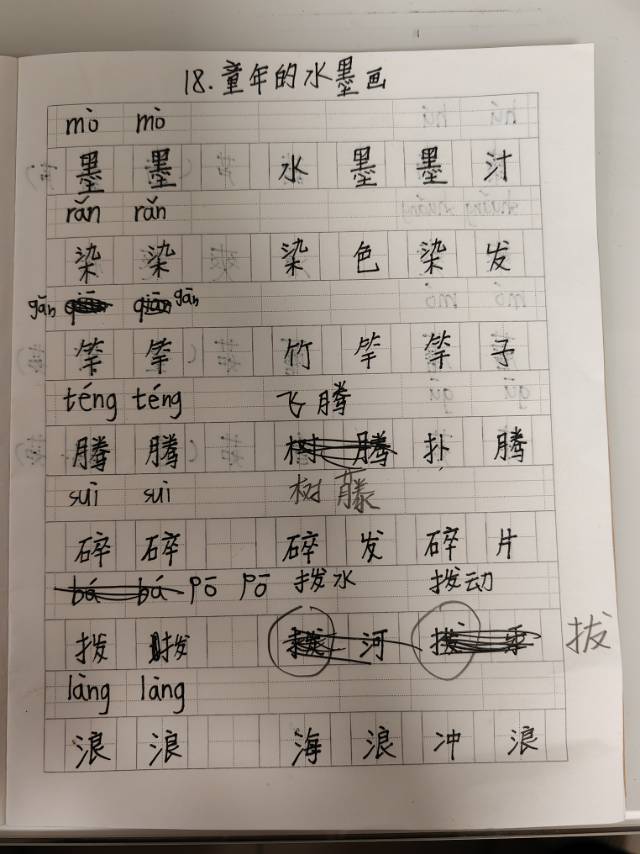 18.童年的水墨画
mò mò
墨 墨 水 墨 墨 汁
rǎn rǎn
染 染 染 色 染 发
gān gān
竿 竿 竹 竿 竿 子
téng téng 飞腾
腾 腾 树 腾 扑 腾
suì suì 树 藤
碎 碎 碎 发 碎 片
bá bá pō pō 拨水 拨动
拨 拨 河 拔
làng làng
浪 浪 海 浪 冲 浪